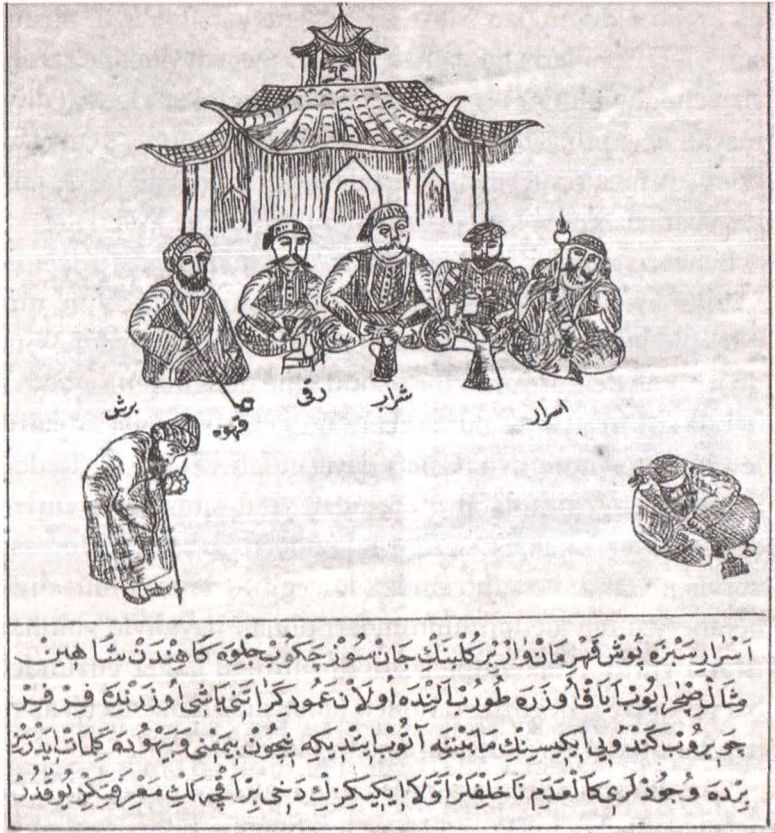 اسرار
شراب
رقی
قهوه
برش
اسرار سبزه پوش قهرمان وار بر كلبنك جان سوز چكوب جلوه كاهندن شاهين
مثال صچرايوب اياق اوزره طوروب النده اولان عمود كرانی باشی اوزرنده فر فر
چويروب كندويی ايكيسنك مابينه آتوب ايتديكه نيچون بيمعنی و بيهوده كلمات ايدرسز
برده وجودلری كالعدم ناخلفلر اولا ايكيكزك دخی بر اقچه لك معرفتكز يوقدر